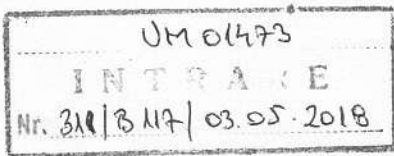 UM 01473
INTRARE
Nr. 311/B 117/ 03.05.2018